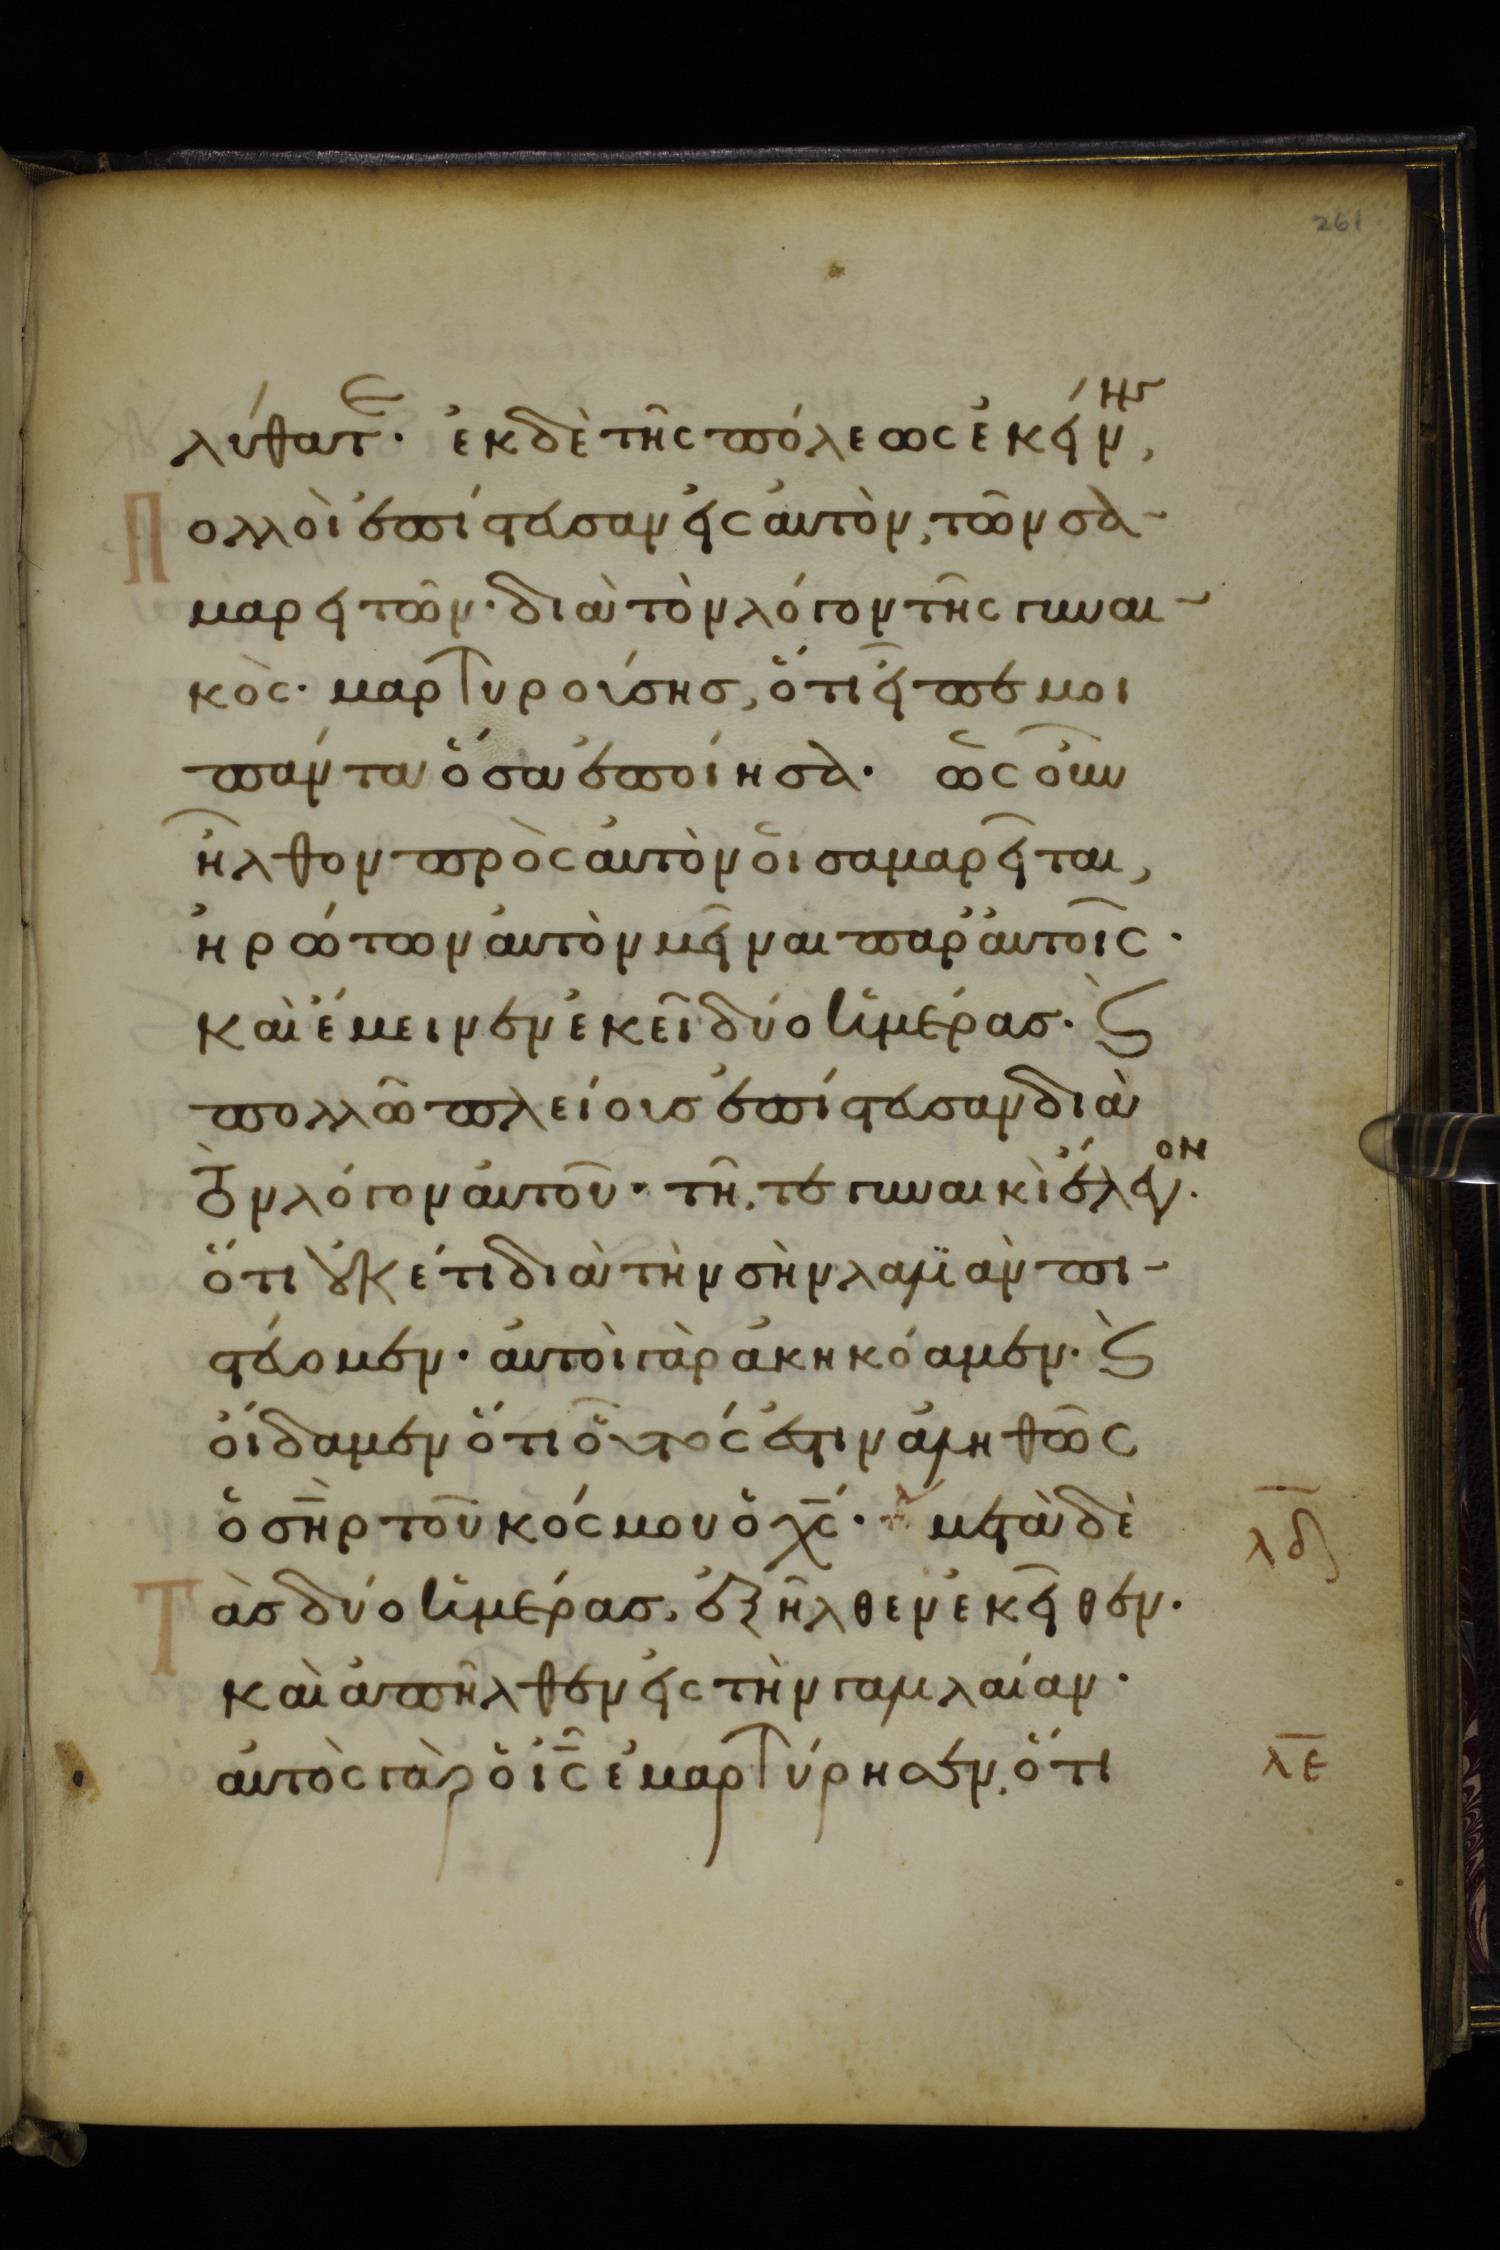 261
λύθατε· ἐκ δὲ τῆς πόλεως ἐκείνης,
Πολλοὶ ἐπίστευσαν εἰς αὐτὸν, τῶν σα-
μαρειτῶν· διὰ τὸν λόγον τῆς γυναι-
κὸς· μαρτυρούσης, ὅτι εἶπέ μοι
πάντα ὅσα ἐποίησα· ὡς οὖν
ἦλθον πρὸς αὐτὸν οἱ σαμαρεῖται,
ἠρώτων αὐτὸν μεῖναι παρ' αὐτοῖς·
καὶ ἔμεινεν ἐκεῖ δύο ἡμέρας· ϗ
πολλῶ πλείους ἐπίστευσαν διὰ
τὸν λόγον αὐτοῦ· τῆ, τε γυναικὶ ἔλεγον·
ὅτι οὐκ έτι διὰ τὴν σὴν λαλϊὰν πι-
στεύομεν· αὐτοὶ γὰρ ἀκηκόαμεν· ϗ
οἴδαμεν ὅτι οὗτός ἐστιν ἀληθῶς
ὁ σ̅η̅ρ τοῦ κόσμου ὁ χ̅ς̅· μετὰ δὲ
λδ
Τὰς δύο ἡμέρας, ἐξῆλθεν ἐκεῖθεν·
καὶ ἀπῆλθεν εἰς τὴν γαλιλαίαν·
αὐτὸς γὰρ ὁ ι̅ς̅ ἐμαρτύρησεν, ὅτι
λε